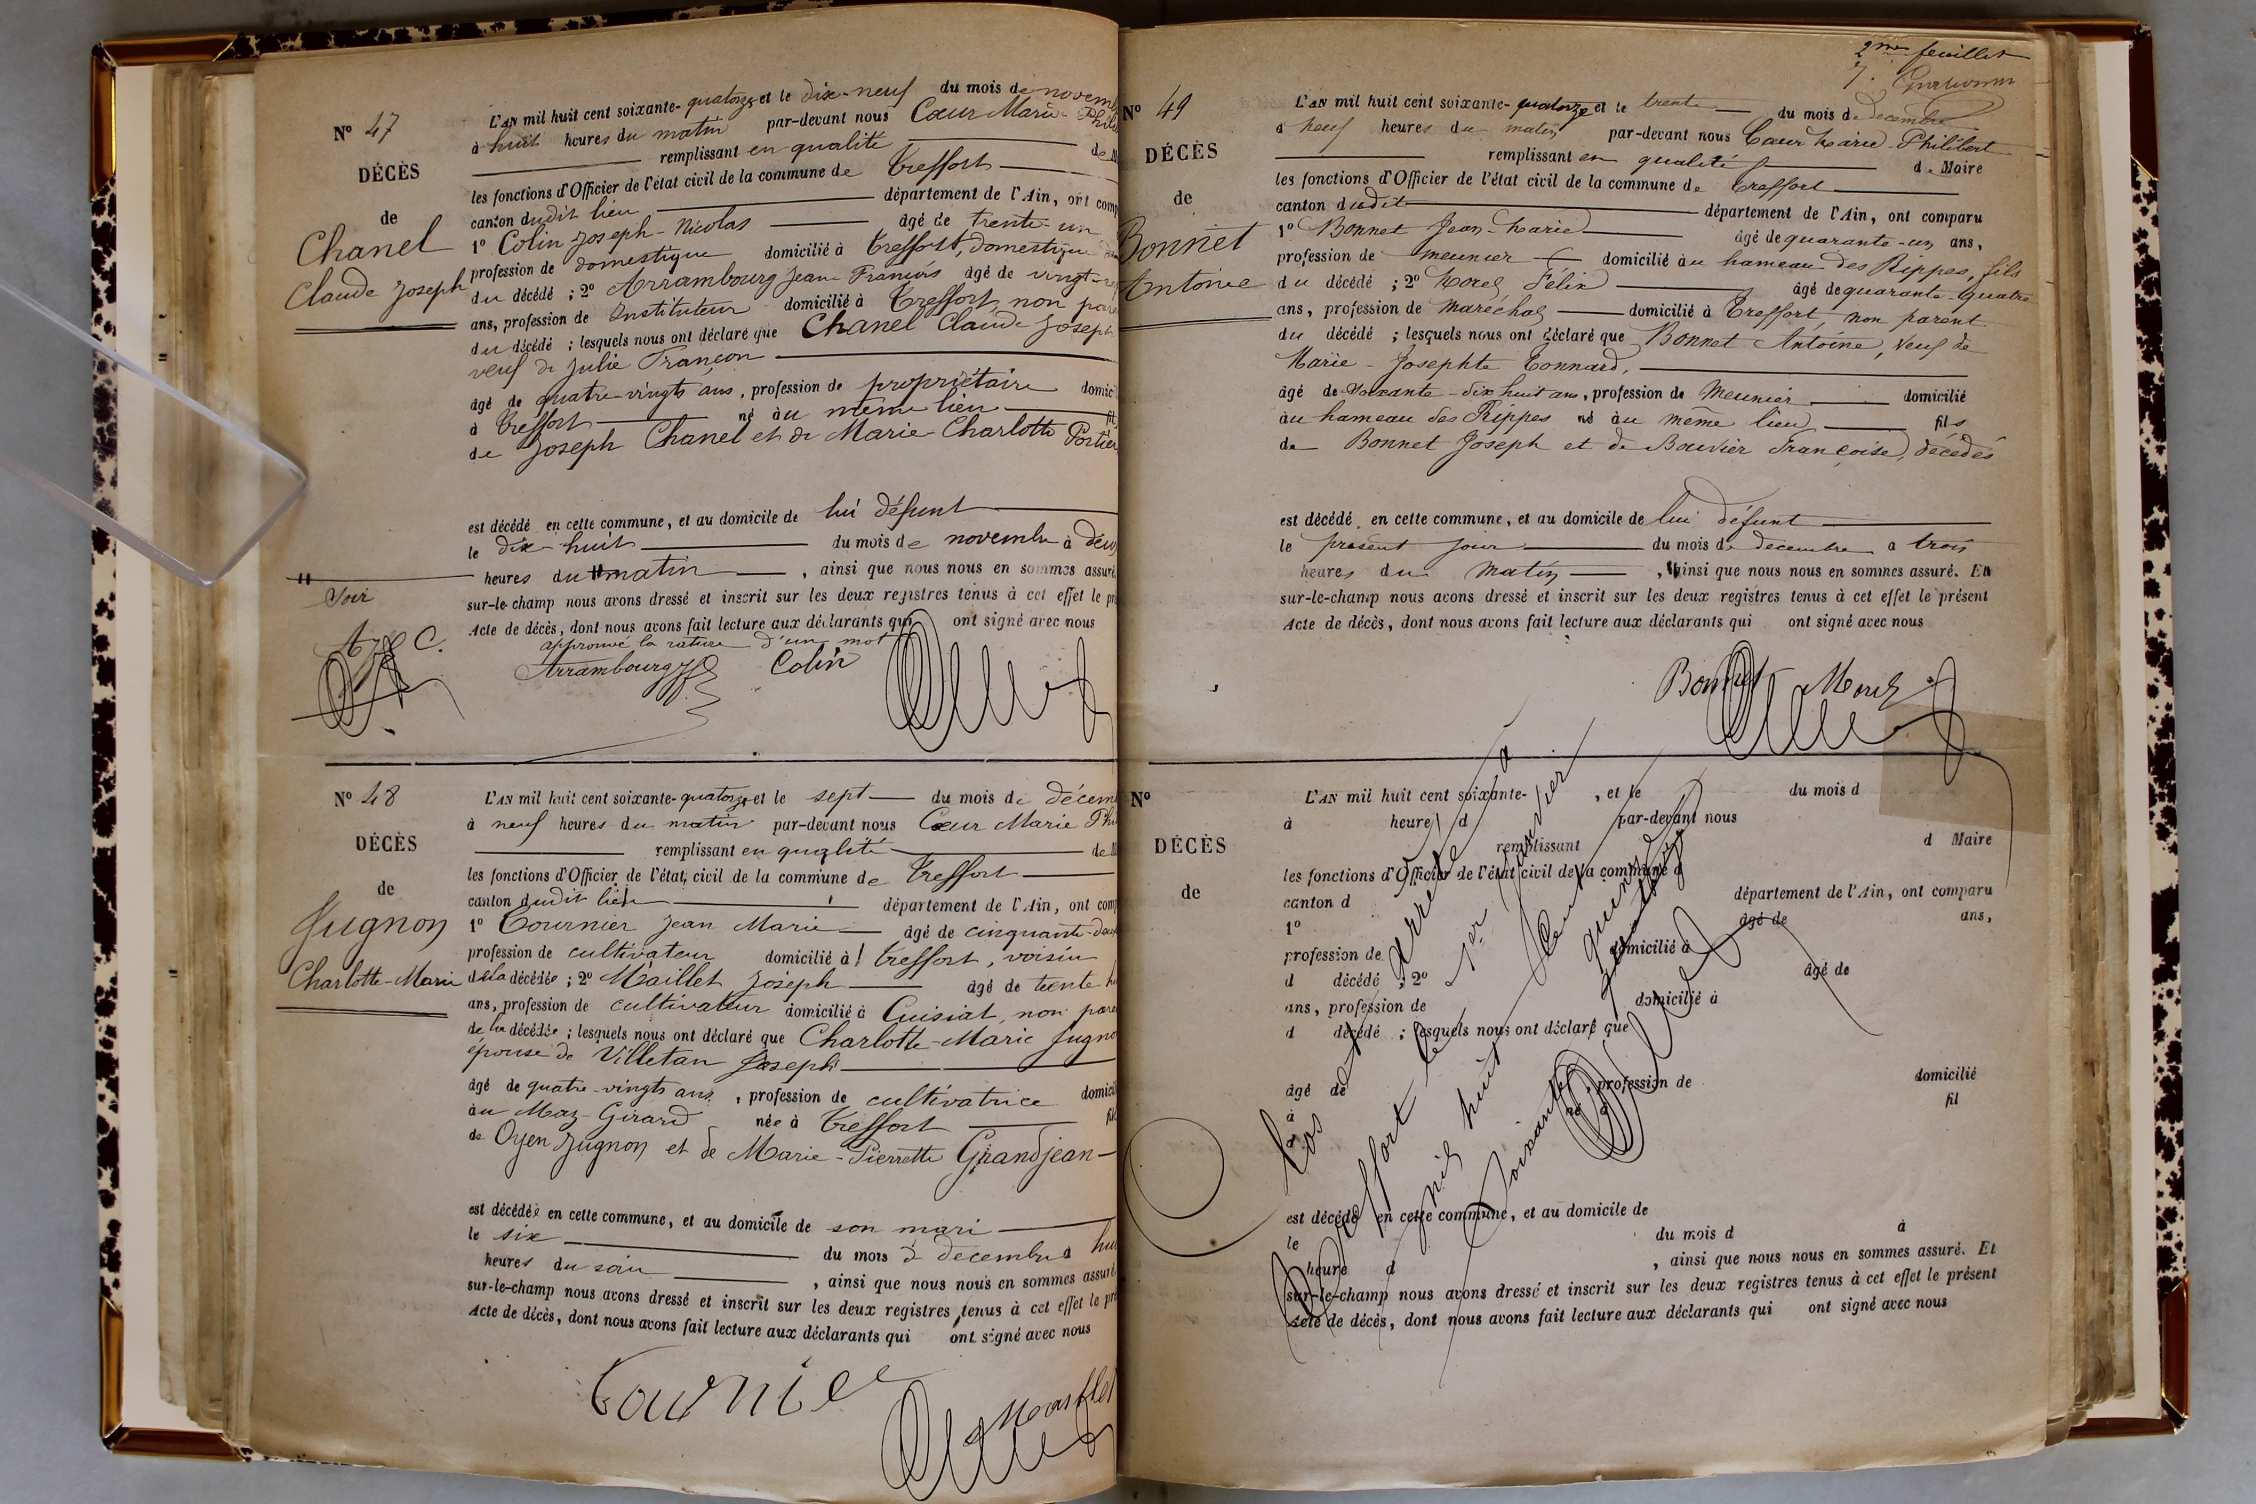 Nº 47
DÉCÈS
de
Chanel
Claude Joseph
L'AN mil huit cent soixante-quatorze et le dix-neuf du mois de novemb
à huit heures du matin par-devant nous Cœur Marie Phili
remplissant en qualité de M
les fonctions d'Officier de l'état civil de la commune de Treffort
canton dudit lieu département de l'Ain, ont comp
1º Colin Joseph-Nicolas âgé de trente-un
profession de domestique domicilié à Treffort, domestique
du décédé ; 2º Arrambourg Jean François âgé de vingt-
ans, profession de Instituteur domicilié à Treffort, non pare
du décédé ; lesquels nous ont déclaré que Chanel Claude Joseph
veuf de Julie Françon
âgé de quatre-vingts ans, profession de propriétaire domici
à Treffort né au même lieu fil
de Joseph Chanel et de Marie Charlotte Portier
est décédé en cette commune, et au domicile de lui défunt
le dix-huit du mois de novembre à deux
heures du matin, ainsi que nous nous en sommes assuré.
sur-le-champ nous avons dressé et inscrit sur les deux registres tenus à cet effet le pr
Acte de décès, dont nous avons fait lecture aux déclarants qui ont signé avec nous
soir
approuvé la rature d'un mot
Arrambourg Colin
Nº 48
DÉCÈS
de
Jugnon
Charlotte-Marie
L'AN mil huit cent soixante-quatorze et le sept du mois de décem
à neuf heures du matin par-devant nous Cœur Marie Phi
remplissant en qualité de M
les fonctions d'Officier de l'état civil de la commune de Treffort
canton dudit lieu département de l'Ain, ont comp
1º Tournier Jean Marie âgé de cinquante-deux
profession de cultivateur domicilié à Treffort, voisin
de la décédée ; 2º Maillet Joseph âgé de trente h
ans, profession de cultivateur domicilié à Cuisiat, non pare
de la décédée ; lesquels nous ont déclaré que Charlotte-Marie Jugno
épouse de Villetan Joseph
âgé de quatre-vingts ans, profession de cultivatrice domicil
au Maz-Girard née à Treffort fil
de Oyen Jugnon et de Marie-Pierrette Grandjean
est décédée en cette commune, et au domicile de son mari
le six du mois d decembre à hu
heures du soir, ainsi que nous nous en sommes assuré
sur-le-champ nous avons dressé et inscrit sur les deux registres tenus à cet effet le pré
Acte de décès, dont nous avons fait lecture aux déclarants qui ont signé avec nous
Tournier
Maillet
2me feuillet
Nº 49
DÉCÈS
de
Bonnet
Antoine
L'AN mil huit cent soixante-quatorze et le trente du mois de decembre
à neuf heures du matin par-devant nous Cœur Marie-Philibert
remplissant en qualité de Maire
les fonctions d'Officier de l'état civil de la commune de Treffort
canton dudit département de l'Ain, ont comparu
1º Bonnet Jean-Marie âgé de quarante-un ans,
profession de meunier domicilié au hameau des Rippes, fils
du décédé ; 2º Morel Félix âgé de quarante-quatre
ans, profession de Maréchal domicilié à Treffort, non parent
du décédé ; lesquels nous ont déclaré que Bonnet Antoine, veuf de
Marie-Josephte Tonnard,
âgé de soixante-dix huit ans, profession de Meunier domicilié
au hameau des Rippes né au même lieu fils
de Bonnet Joseph et de Bouvier Françoise, décédés
est décédé en cette commune, et au domicile de lui défunt
le présent jour du mois de decembre à trois
heures du matin, ainsi que nous nous en sommes assuré. Et
sur-le-champ nous avons dressé et inscrit sur les deux registres tenus à cet effet le présent
Acte de décès, dont nous avons fait lecture aux déclarants qui ont signé avec nous
Bonnet Morel
Nº
DÉCÈS
de
L'AN mil huit cent soixante- , et le du mois d
à heure d par-devant nous
remplissant d Maire
les fonctions d'Officier de l'état civil de la commune d
canton d département de l'Ain, ont comparu
1º âgé de ans,
profession de domicilié à
d décédé ; 2º âgé de
ans, profession de domicilié à
d décédé ; lesquels nous ont déclaré que
âgé de , profession de domicilié
à né à fil
d
est décédé en cette commune, et au domicile de
le du mois d à
heure d , ainsi que nous nous en sommes assuré. Et
sur-le-champ nous avons dressé et inscrit sur les deux registres tenus à cet effet le présent
Acte de décès, dont nous avons fait lecture aux déclarants qui ont signé avec nous
Clos et arrêté à
Treffort le 1er Janvier
mil huit cent
soixante quinze